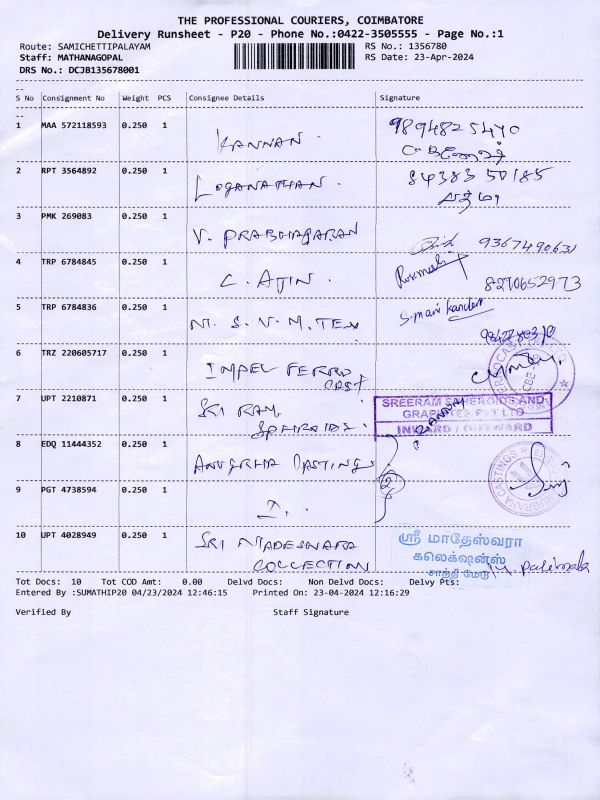 THE PROFESSIONAL COURIERS, COIMBATORE
Delivery Runsheet - P20 - Phone No.:0422-3505555 - Page No.:1
Route: SAMICHETTIPALAYAM RS No.: 1356780
Staff: MATHANAGOPAL RS Date: 23-Apr-2024
DRS No.: DCJB135678001
S No Consignment No Weight PCS Consignee Details Signature
1 MAA 572118593 0.250 1 KANNAN. 9894825440
2 RPT 3564892 0.250 1 LOGANATHAN. 84383 50185
3 PMK 269083 0.250 1 V. PRABHAGARAN 9367490631
4 TRP 6784845 0.250 1 C. AJIN. 8270652973
5 TRP 6784836 0.250 1 M. S. V. M. TEX S.mari kanden
6 TRZ 220605717 0.250 1 IMPEL FERRO CAST
7 UPT 2210871 0.250 1 SRI RAM SPHROIDS
SREERAM SPHEROIDS AND
GRAPHITES PVT LTD
INWARD / OUTWARD
8 EDQ 11444352 0.250 1 ANUGRHA CASTINGS
9 PGT 4738594 0.250 1 2
10 UPT 4028949 0.250 1 SRI MADESWARA COLLECTION
ஸ்ரீ மாதேஸ்வரா
கலெக்ஷன்ஸ்
சாந்தி மேடு
Tot Docs: 10 Tot COD Amt: 0.00 Delvd Docs: Non Delvd Docs: Delvy Pts:
Entered By :SUMATHIP20 04/23/2024 12:46:15 Printed On: 23-04-2024 12:16:29
Verified By Staff Signature